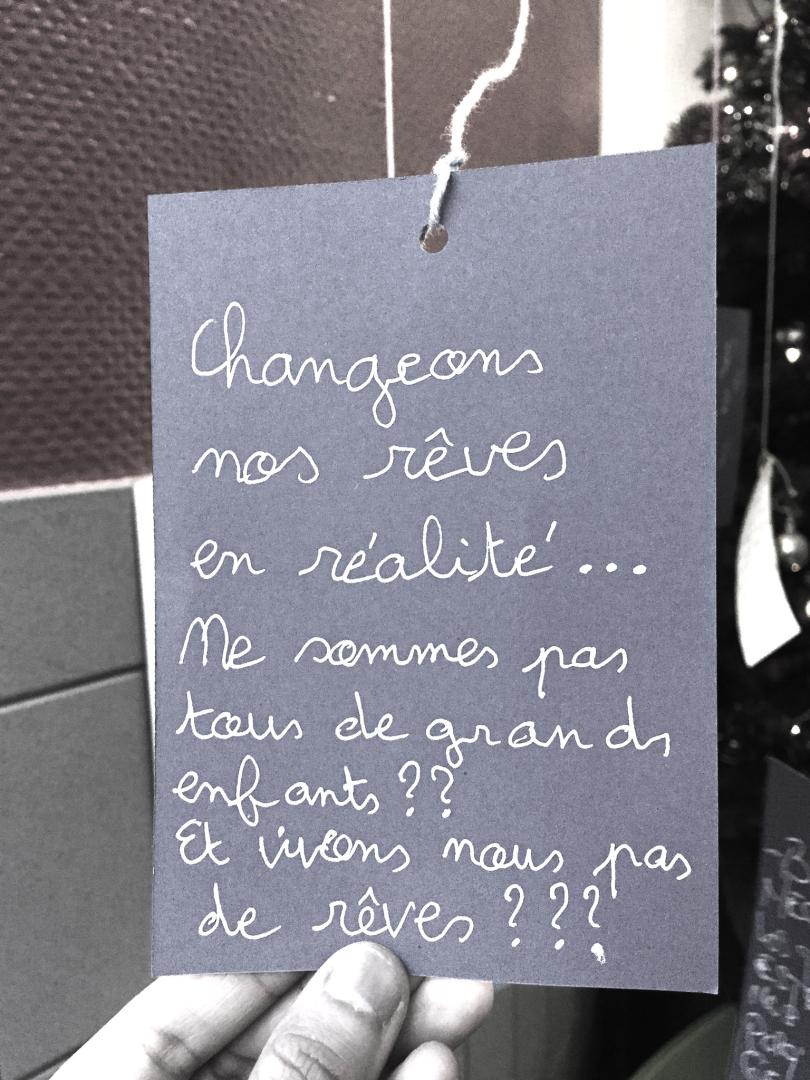 Changeons
nos rêves
en réalité...
Ne sommes pas
tous de grands
enfants ??
Et vivons nous pas
de rêves ???